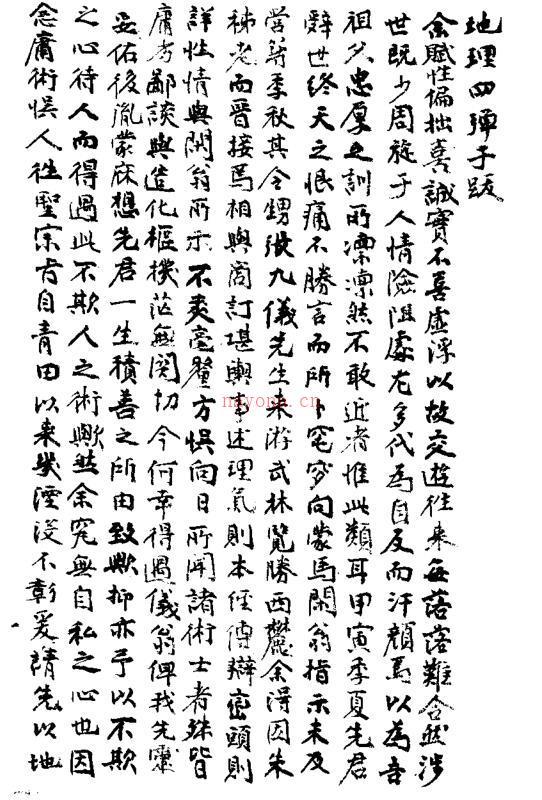 地理四彈子跋
余賦性偏拙喜誠實不喜虛浮以故交遊往來每落落難合然涉
世既少周旋于人情險阻處尤多代為自反而汗顏焉以為吾
祖父忠厚之訓所凜凜然不敢近者惟此類耳甲寅季夏先君
辭世終天之恨痛不勝言而所卜窀穸向蒙馬閑翁指示未及
營葬季秋其令甥張九儀先生來游武林覽勝西麓余得因朱
秭老而晉接焉相與商訂堪輿事述理氣則本經傳辯巒頭則
詳性情與閑翁所示不爽毫釐方悞向日所聞諸術士者殊皆
庸夯鄙談與造化樞機茫無関切今何幸得遇儀翁俾我先靈
妥佑後胤蒙庥想先君一生積善之所由致歟抑亦予以不欺
之心待人而得遇此不欺人之術歟然余究無自私之心也因
念庸術悞人徃聖宗旨自青田以來幾湮没不彰爰請先以地
nayona.cn